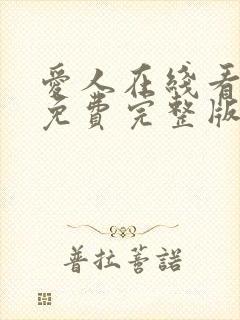 愛人在綫看
免費完整版
普拉菩諾